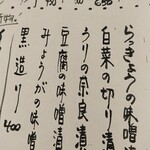 らっきょうの味噌漬
白菜の切り漬
うりの奈良漬
豆腐の味噌漬
みょうがの味噌
黒造り
400